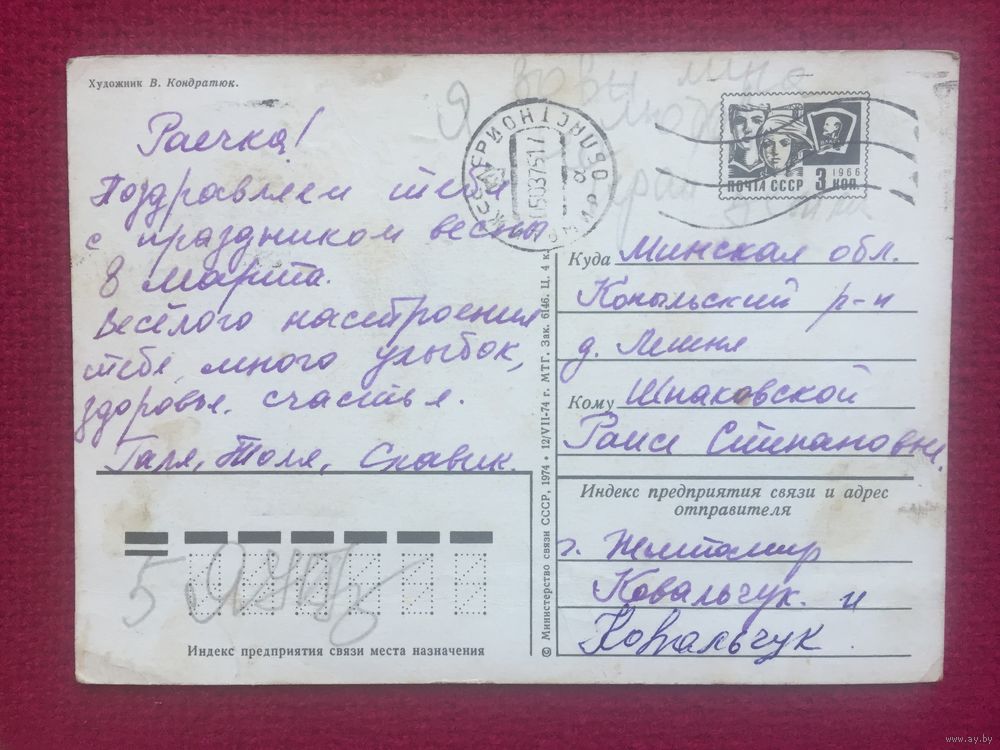 Художник В. Кондратюк.
Раечка!
Поздравляем тебя
с праздником весны
8 марта.
Весёлого настроения
тебе, много улыбок,
здоровье, счастья.
Галя, Толя, Славик.
ПОЧТА СССР 3 КОП.
1966
Куда Минская обл.
Копыльский р-н
д. Лешня
Кому Шпаковской
Раисе Степановны.
Индекс предприятия связи и адрес
отправителя
г. Житомир
Ковальчук. и
Ковальчук
5
Индекс предприятия связи места назначения
© Министерство связи СССР, 1974 • 12/VII-74 г. МТГ. Зак. 6146. Ц. 4 к.
www.ay.by